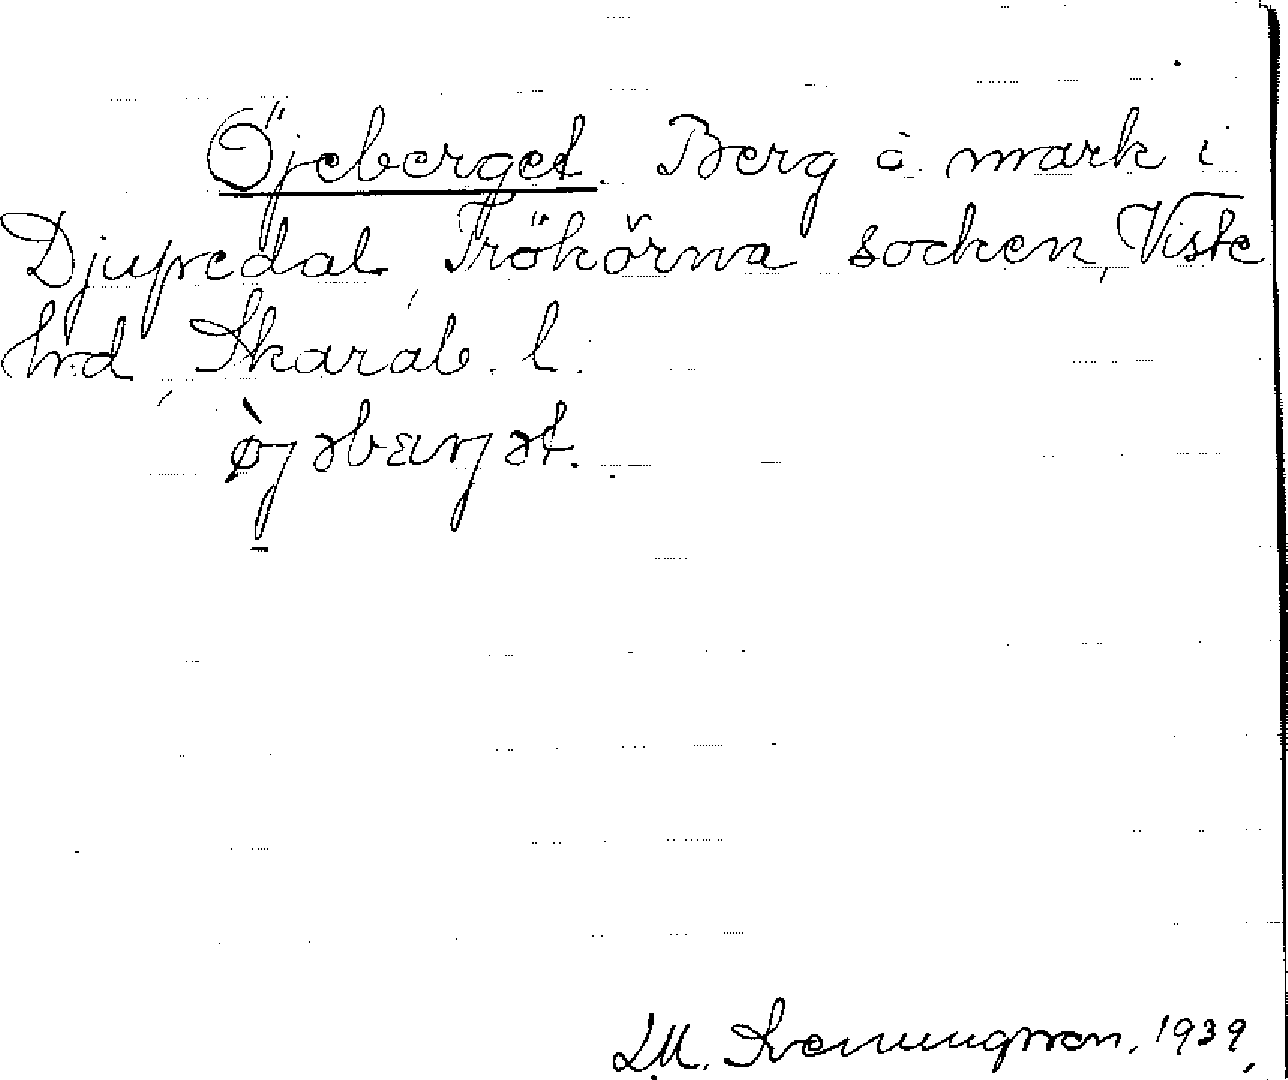 Öjeberget. Berg å mark i
Djupedal, Trökörna socken, Viste
hrd, Skarab. l.
ø̀jəbærjət.
L.M. Svenungsson. 1939.